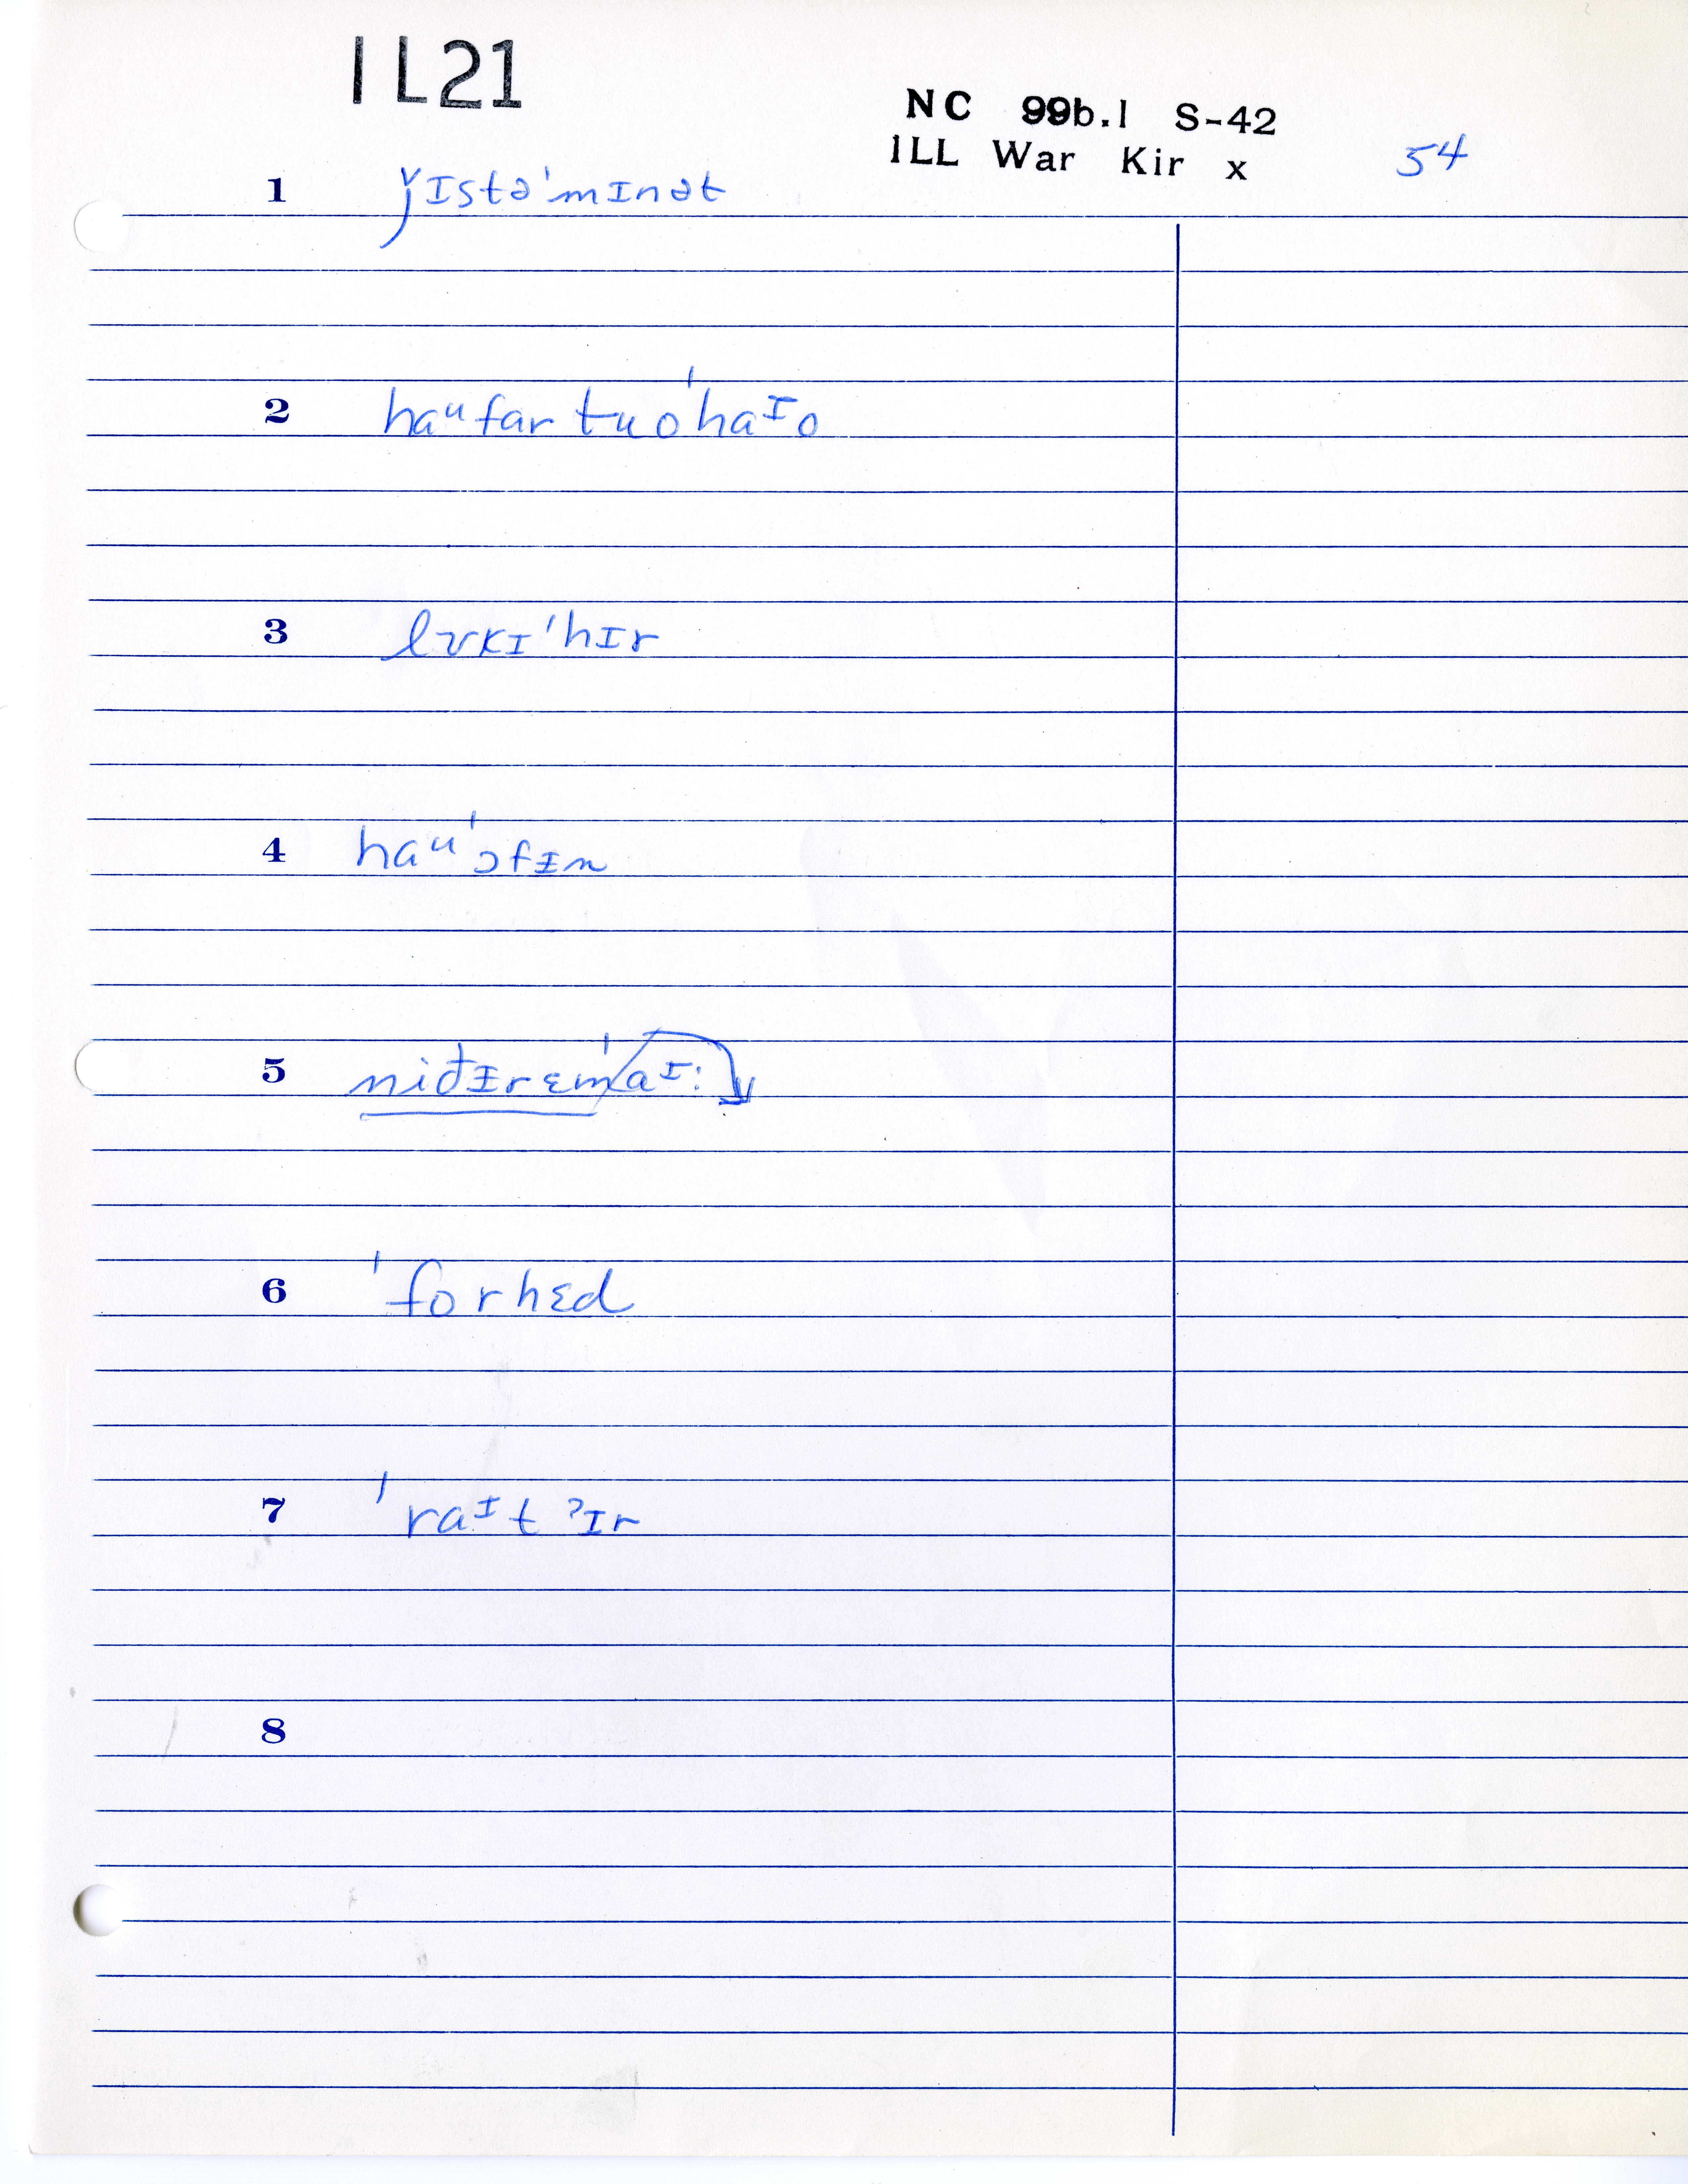 IL21
NC 99b.1 S-42
ILL War Kir x
54
1 ǰɪstəˈmɪnət
2 haᵘfar tu oˈhaᶦo
3 lʊkɪˈhɪr
4 haᵘˈɔfɪn
5 niđɪrɛmˈaᶦ:
6 ˈforhɛd
7 ˈraᶦt ʔɪr
8